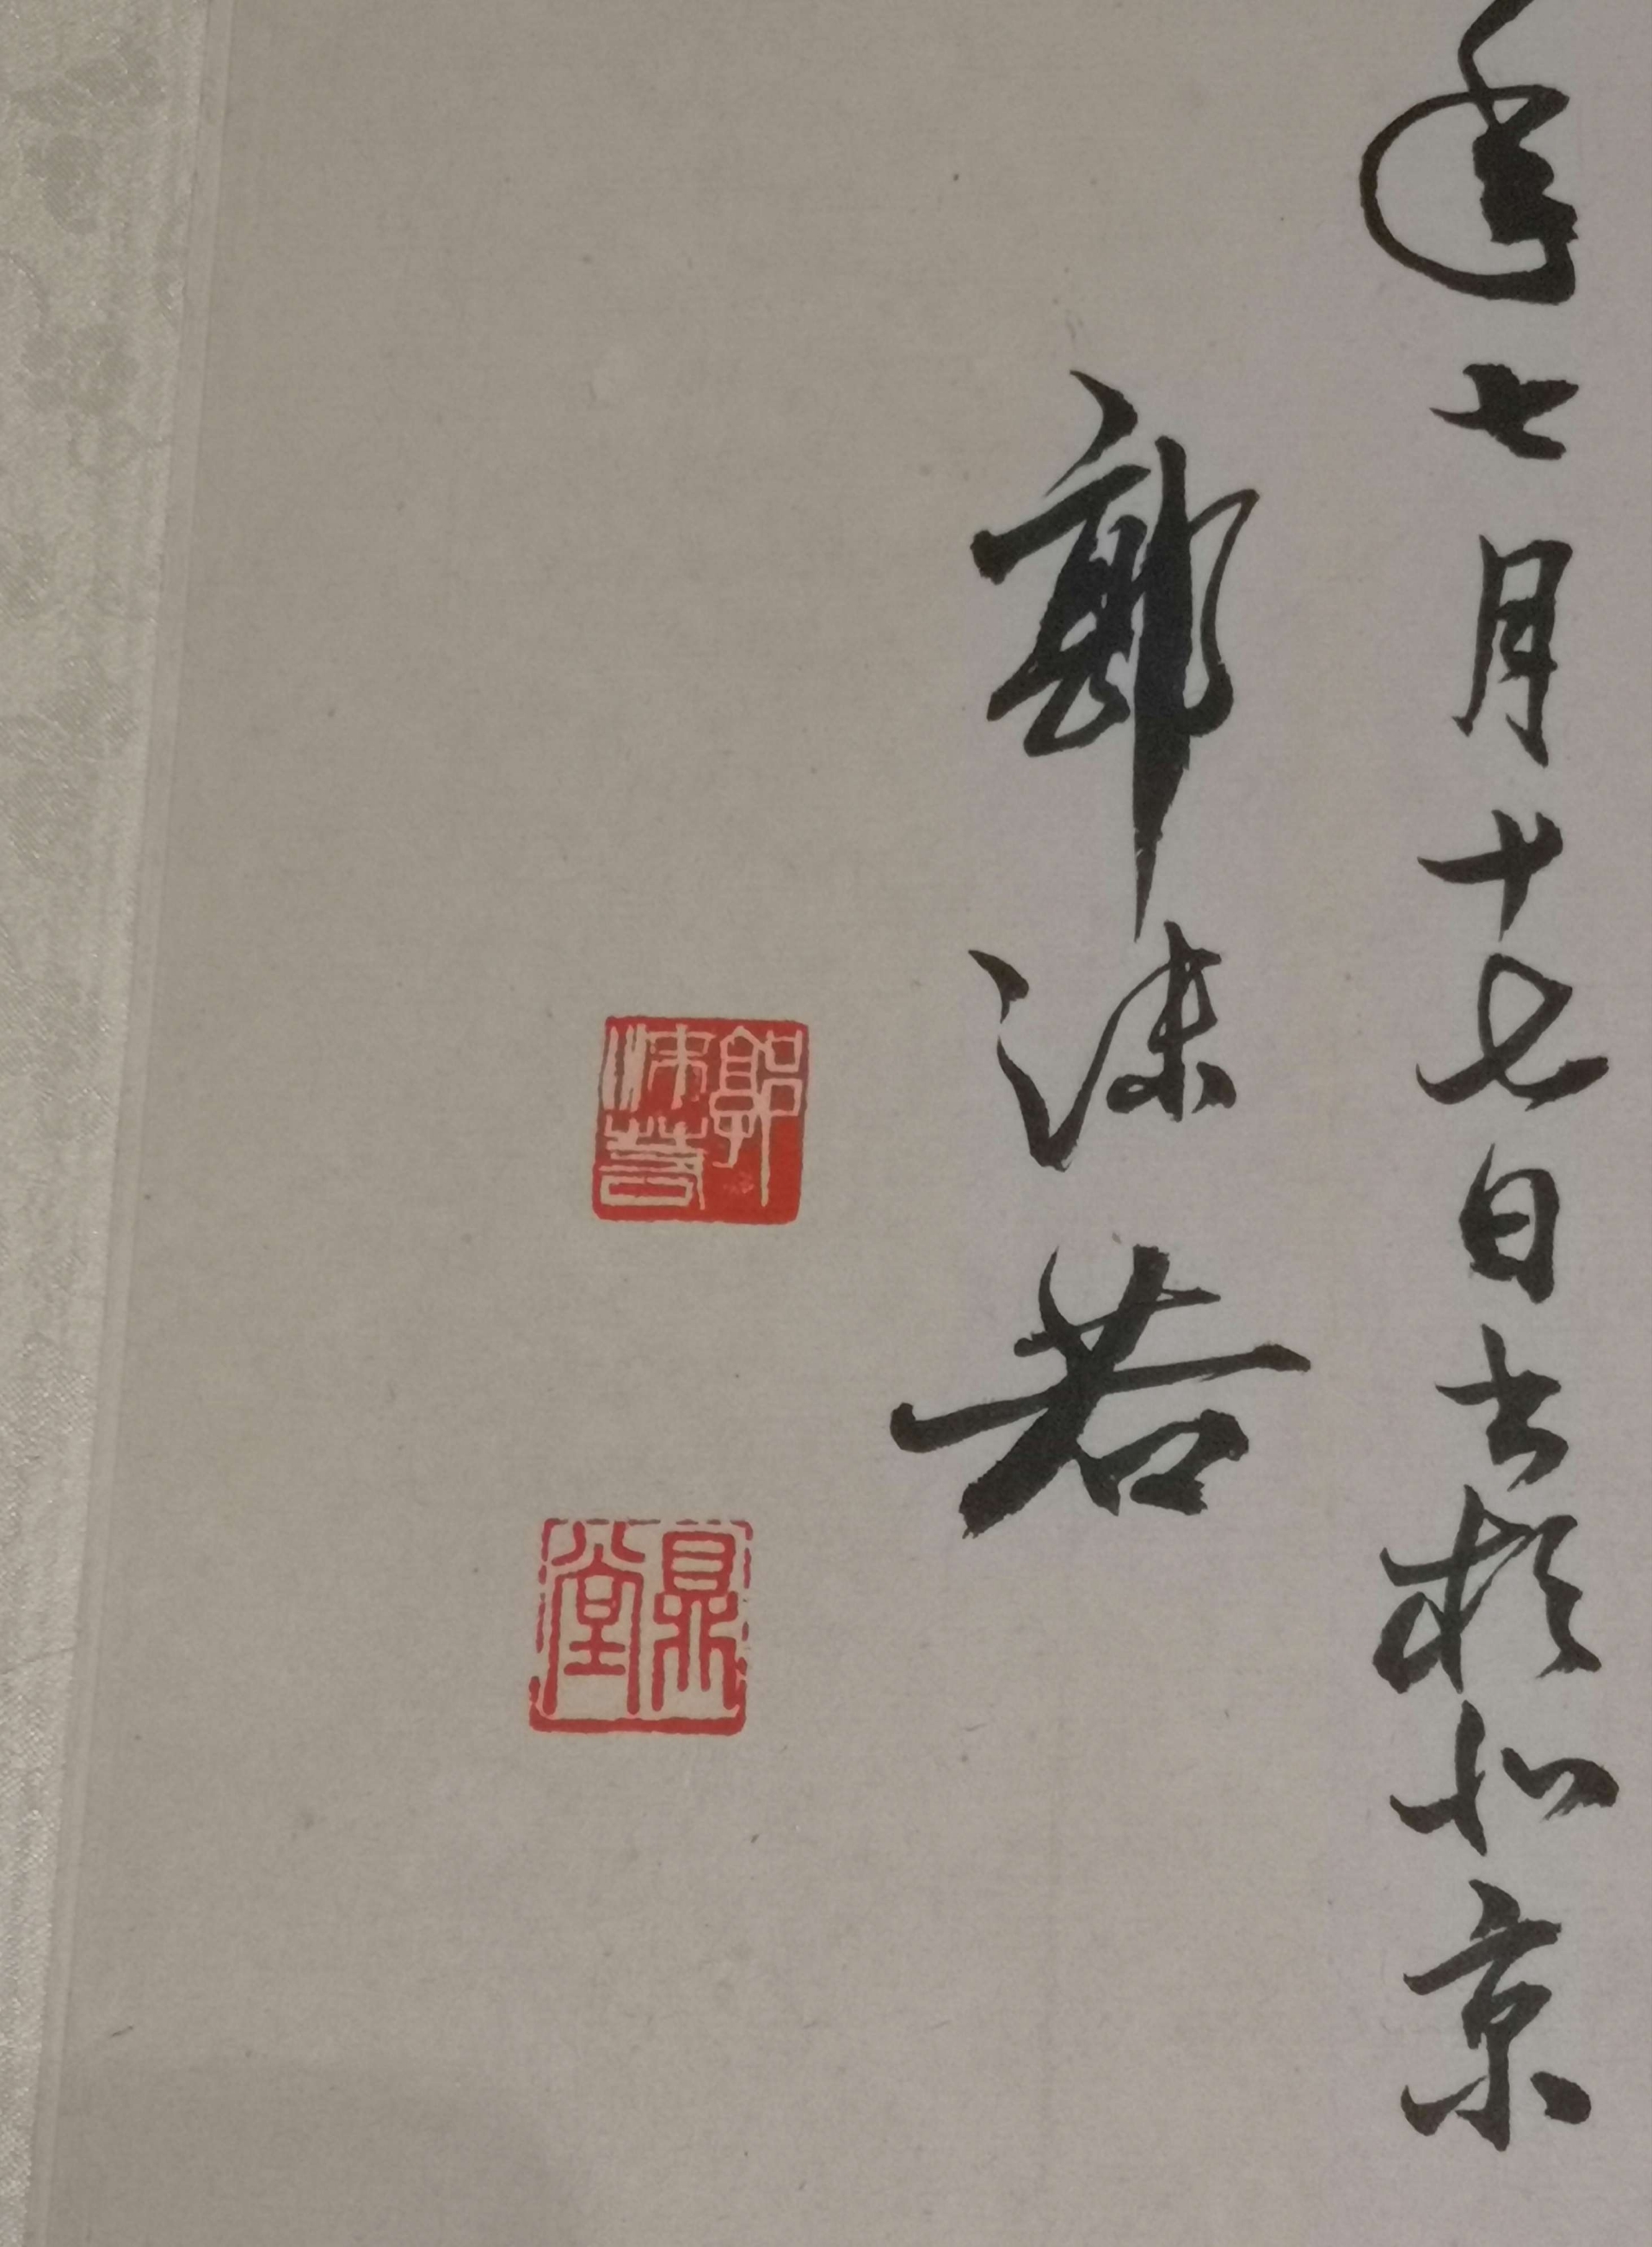 年七月十七日书於北京
郭沫若
郭沫若
鼎堂